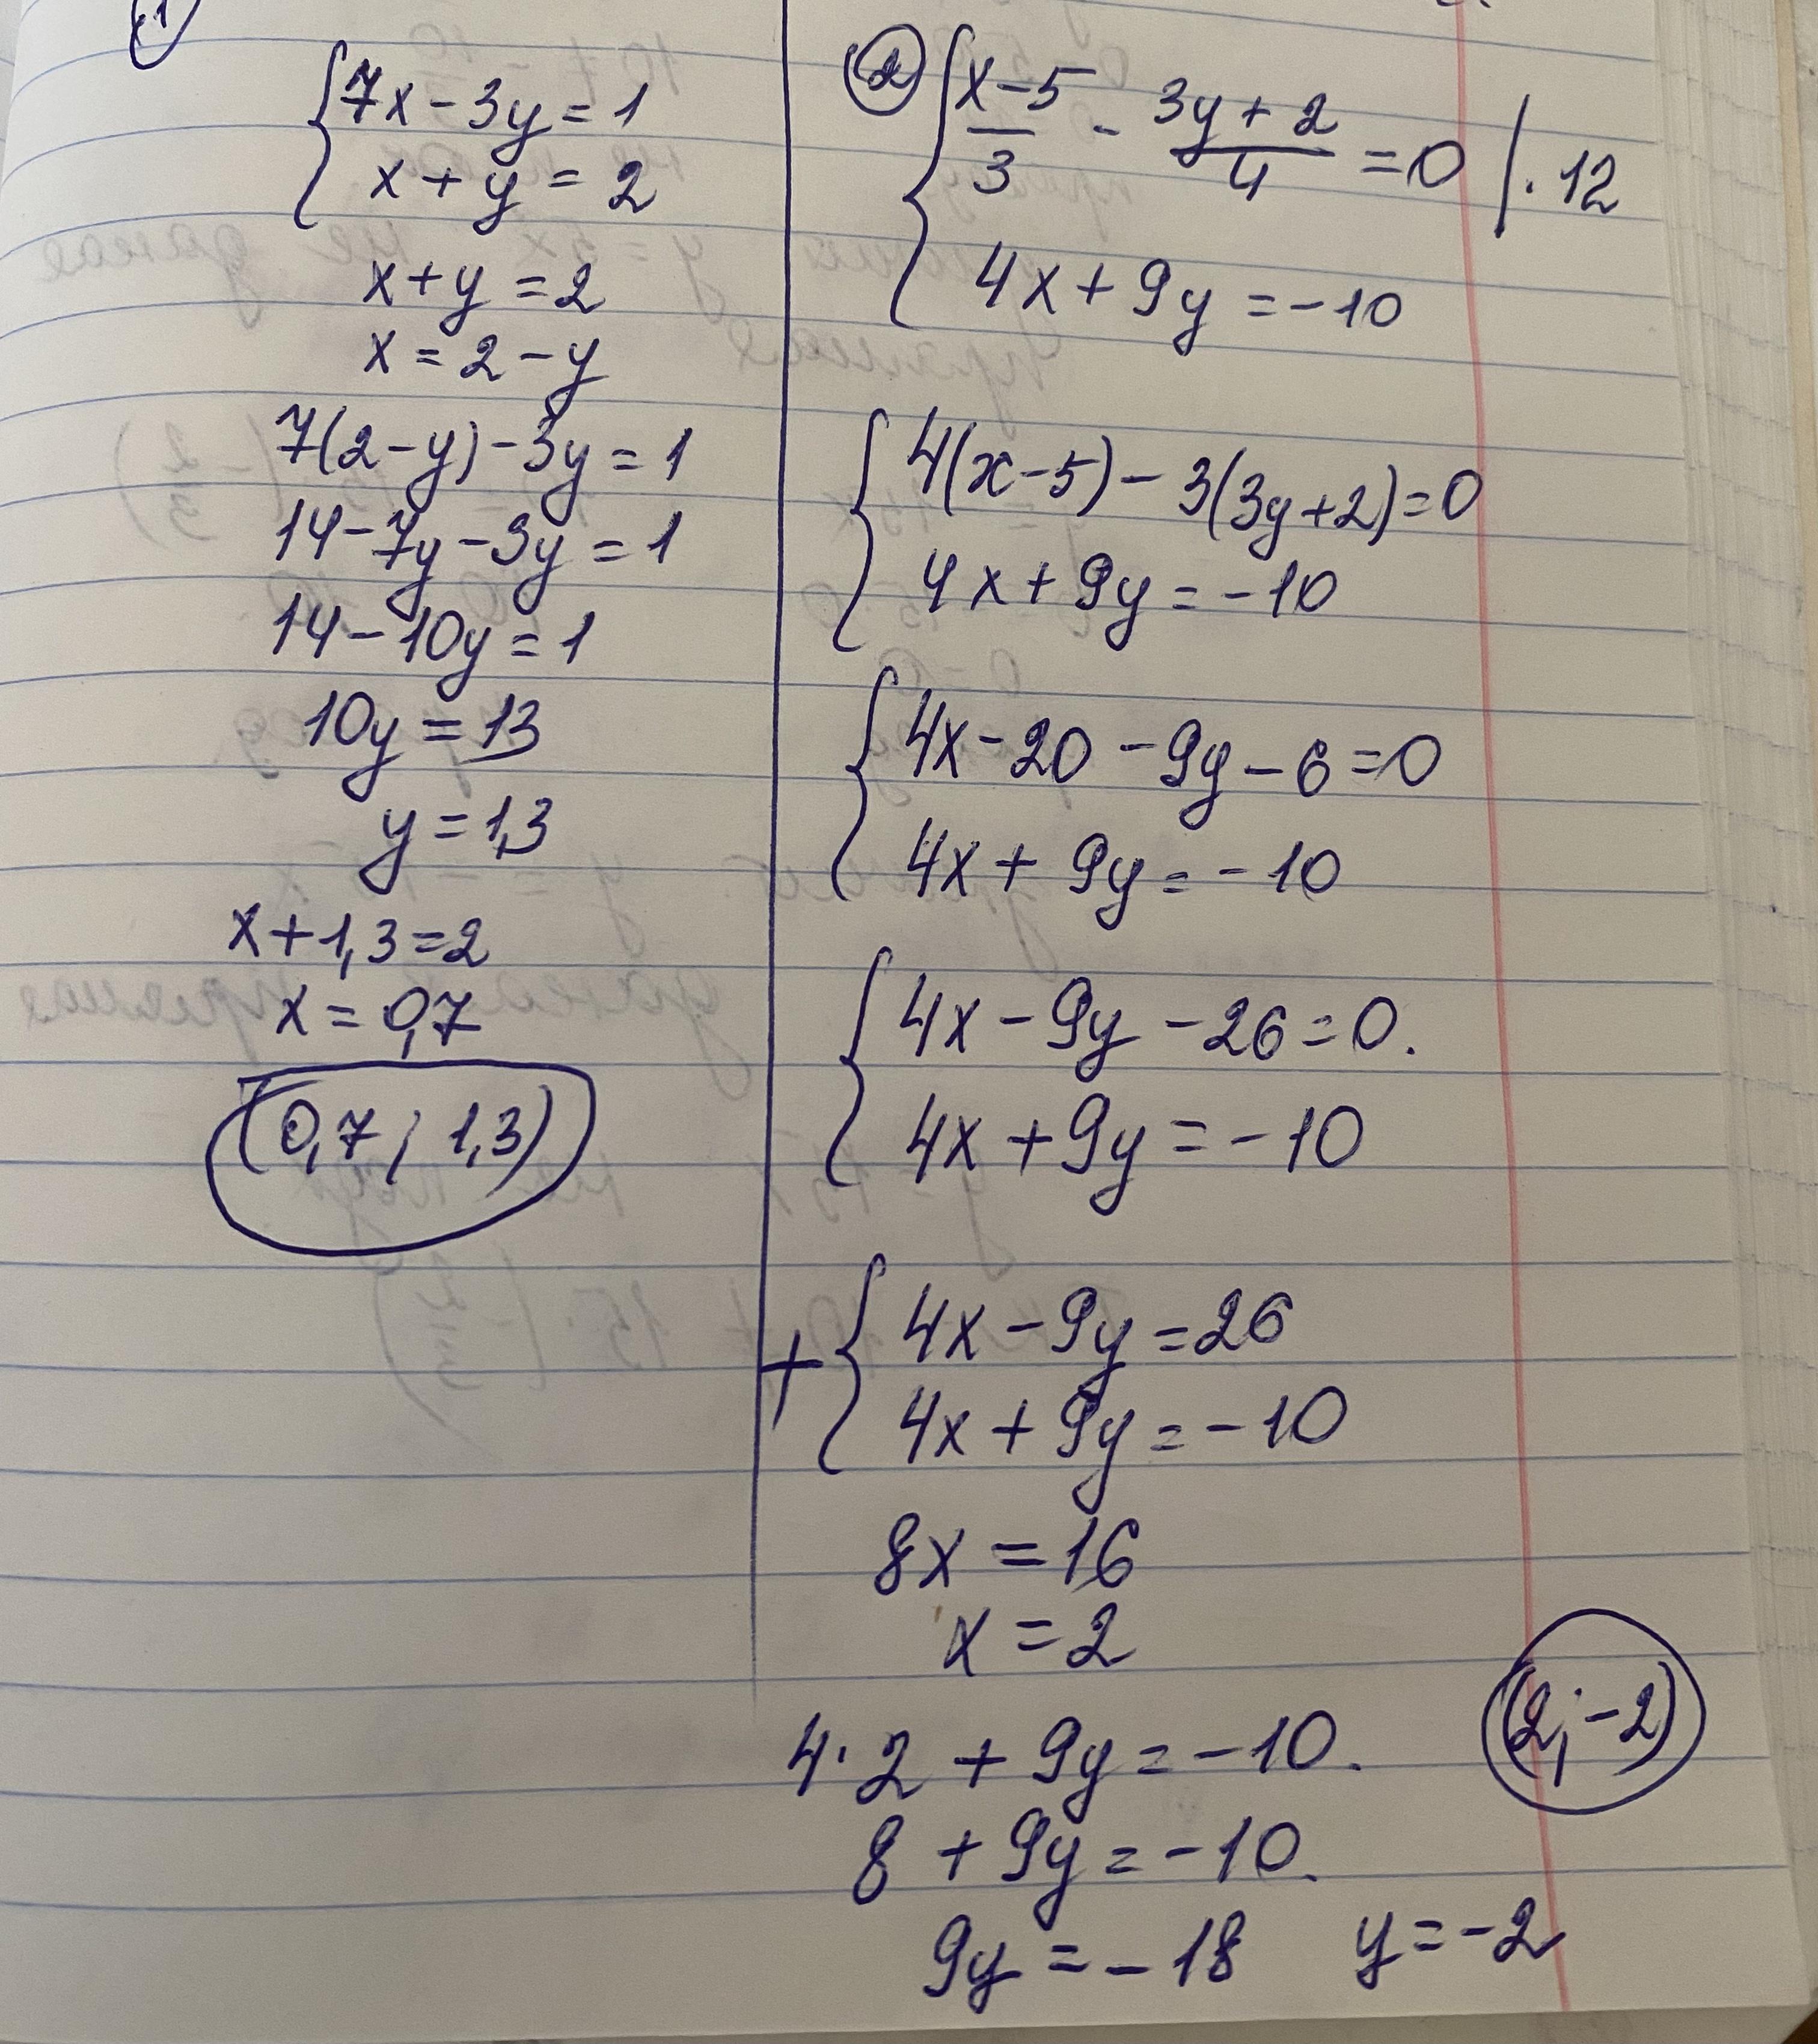 ①
{7x - 3y = 1
x + y = 2
x + y = 2
x = 2 - y
7(2 - y) - 3y = 1
14 - 7y - 3y = 1
14 - 10y = 1
10y = 13
y = 1,3
x + 1,3 = 2
x = 0,7
(0,7 ; 1,3)
② {x-5/3 - 3y+2/4 = 0 | · 12
4x + 9y = -10
{4(x-5) - 3(3y+2) = 0
4x + 9y = -10
{4x - 20 - 9y - 6 = 0
4x + 9y = -10
{4x - 9y - 26 = 0.
4x + 9y = -10
+ {4x - 9y = 26
4x + 9y = -10
8x = 16
x = 2
4 · 2 + 9y = -10.
8 + 9y = -10.
9y = -18 y = -2
(2; -2)